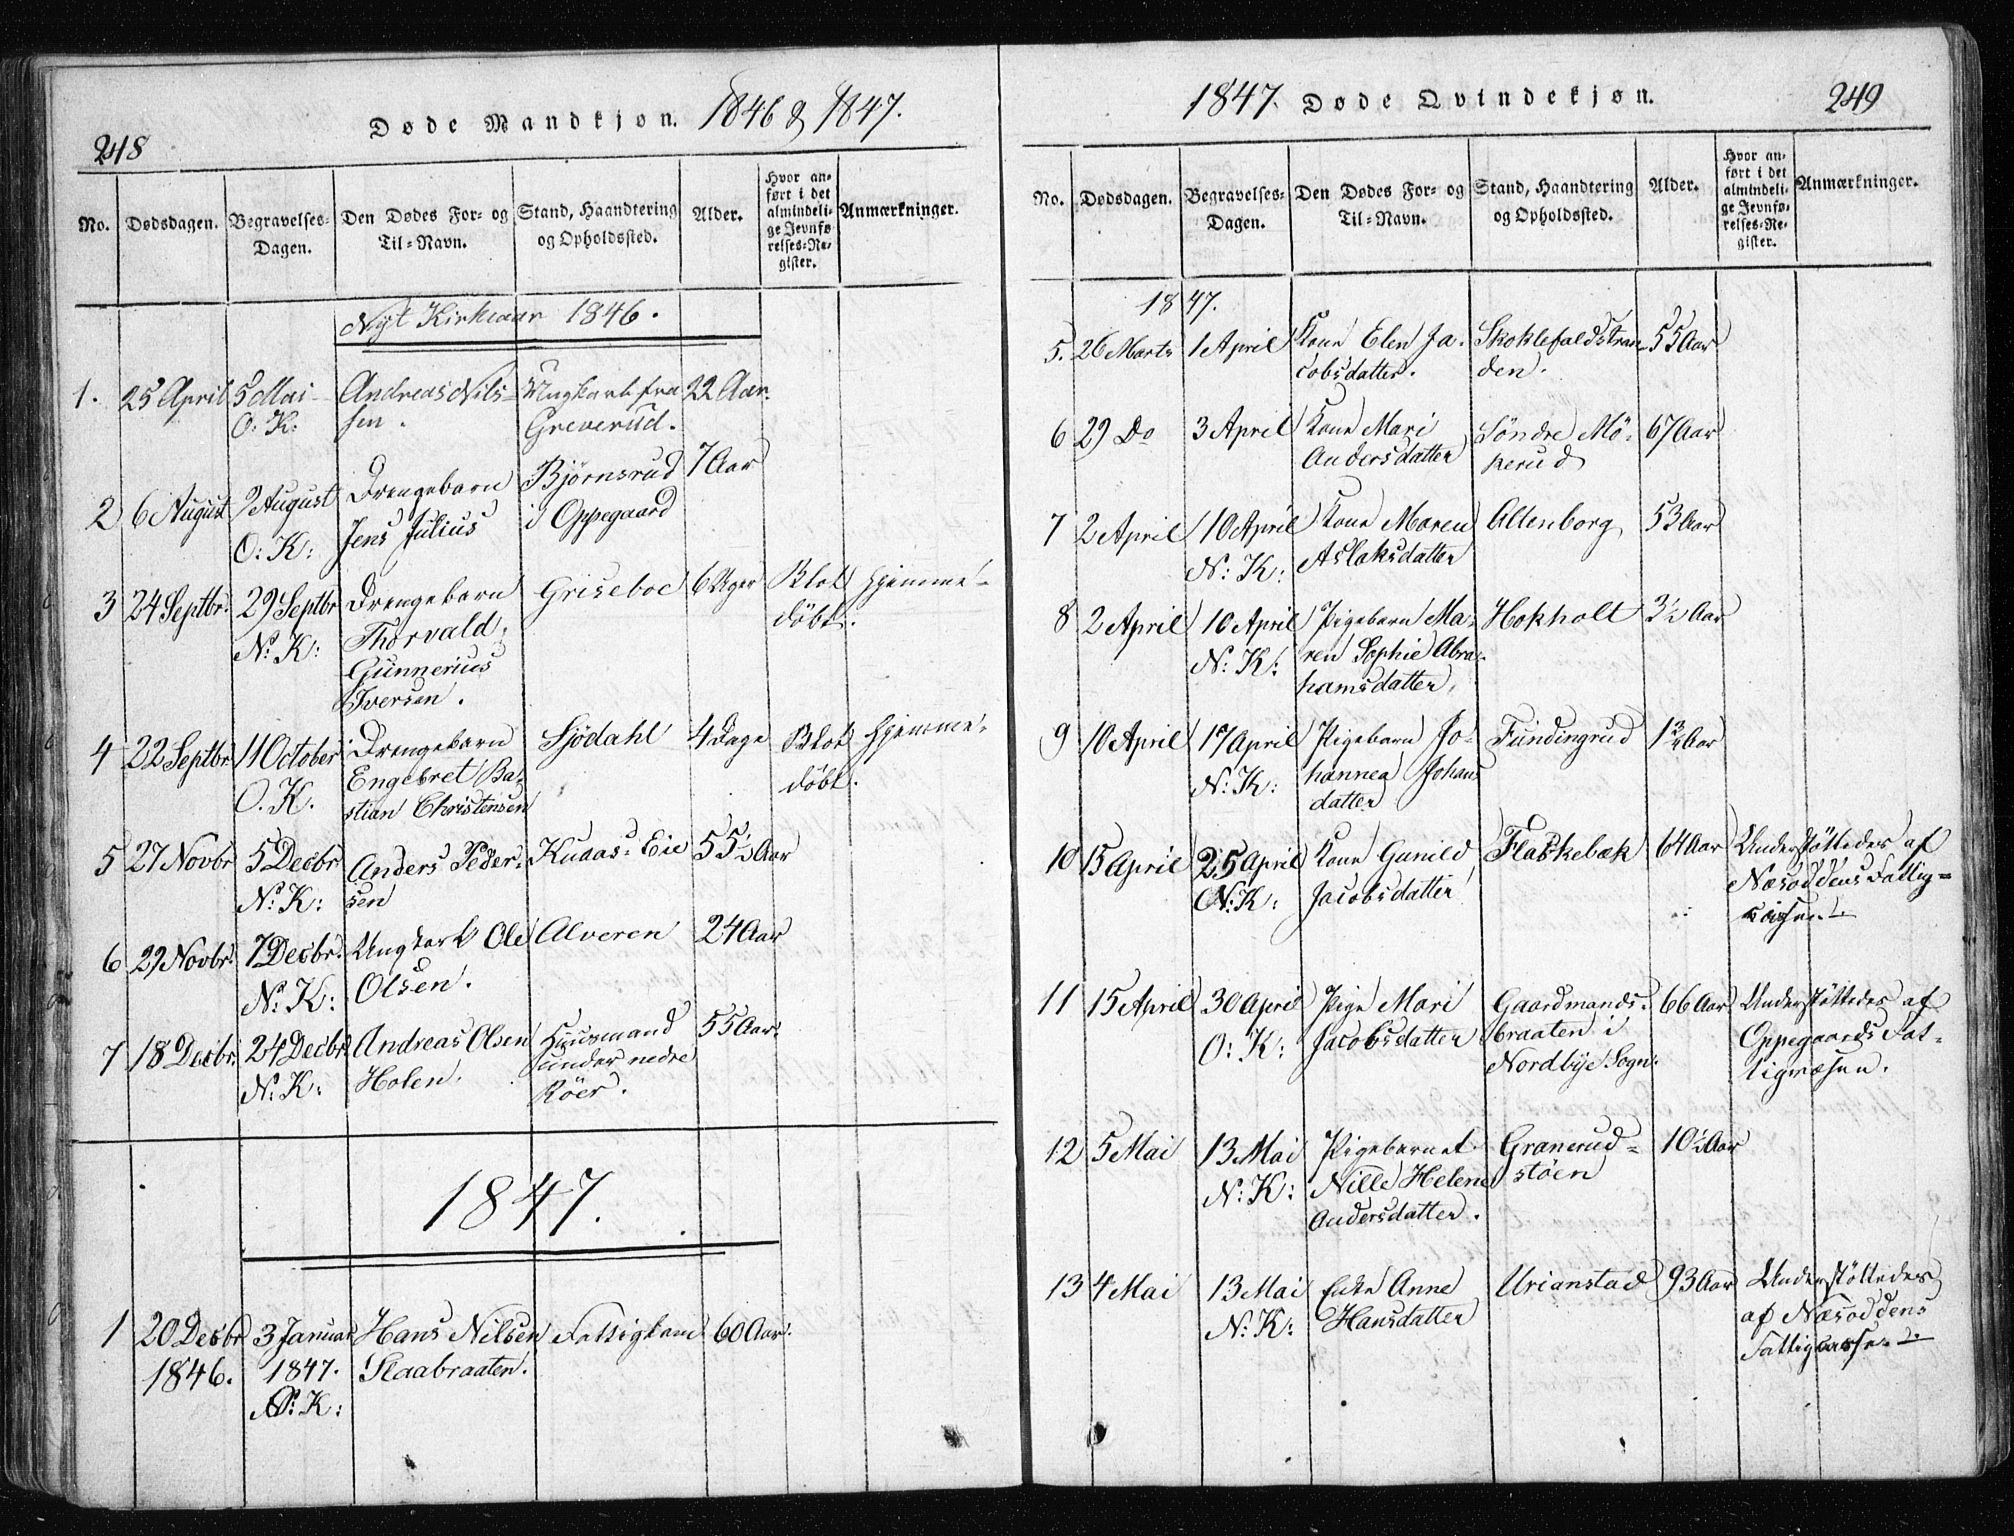 248
Døde Mandkjøn. 1846 & 1847.
No. Dødsdagen. Begravelses-Dagen. Den Dødes For- og Til-Navn. Stand, Haandtering og Opholdssted. Alder. Hvor anført i det almindelige Jevnførelses-Register. Anmærkninger.
Nyt Kirkeaar 1846.
1. 25 April 5 Mai Andreas Nils- Ungkarl fra 22 Aar.
O. K: sen. Greverud.
2 6 August 9 August Drengebarn Bjørnsrud 7 Aar
O: K: Jens Julius i Oppegaard
3 24 Septbr. 29 Septbr Drengebarn Griseboe 6 Uger Blot hjemme-
N: K: Thorvald døbt.
Gunnerius
Iversen.
4 22 Septbr 11 October Drengebarn Sjödahl 4 Dage Blot hjemme-
O. K. Engebret Ba- döbt.
stian Christensen
5 27 Novbr 5 Decbr Anders Peder- Kudaas-Eie 55½ Aar
N: K: sen
6 29 Novbr. 7 Decbr. Ungkarl Ole Alveren 24 Aar
N: K: Olsen.
7 18 Decbr. 24 Decbr Andreas Olsen Huusmand 55 Aar.
N: K: Holen. under nedre
Röer.
1847.
1 20 Decbr 3 Januar Hans Nilsen Fattiglem 60 Aar.
1846. 1847. Slaabraaten.
K:
1847. Døde Qvindekjøn.
249
No. Dødsdagen. Begravelses-Dagen. Den Dødes For- og Til-Navn. Stand, Haandtering og Opholdssted. Alder. Hvor anført i det almindelige Jevnførelses-Register. Anmærkninger.
1847.
5. 26 Marts 1 April Kone Elen Ja- Skoklefaldstran- 55 Aar
cobsdatter. den.
6 29 Do 3 April Kone Mari Söndre Mö- 67 Aar
Andersdatter kerud
7 2 April 10 April Kone Maren Altenborg 53 Aar
N: K: Aslaksdatter
8 2 April 10 April Pigebarn Ma- Hokholt 3½ Aar
N: K: ren Sophie Abra-
hamsdatter.
9 10 April 17 April Pigebarn Jo- Fundingrud 1¾ Aar
N: K: hannea Johans
datter
10 15 April 25 April Kone Gunild Flaskebæk 64 Aar Understøttedes af
K: Jacobsdatter Næsoddens Fattig-
casse.
11 15 April 30 April Pige Mari Gaardmands- 66 Aar Understøttedes af
O: K: Jacobsdatter braaten i Oppegaards Fat-
Nordbye Sogn. tigvæsen.
12 5 Mai 13 Mai Pigebarnet Granerud- 10½ Aar
N: K: Nille Helene støen
Andersdatter.
13 4 Mai 13 Mai Enke Anne Urianstad 93 Aar Understøttedes
N: K: Hansdatter af Næsoddens
Fattigcasse.